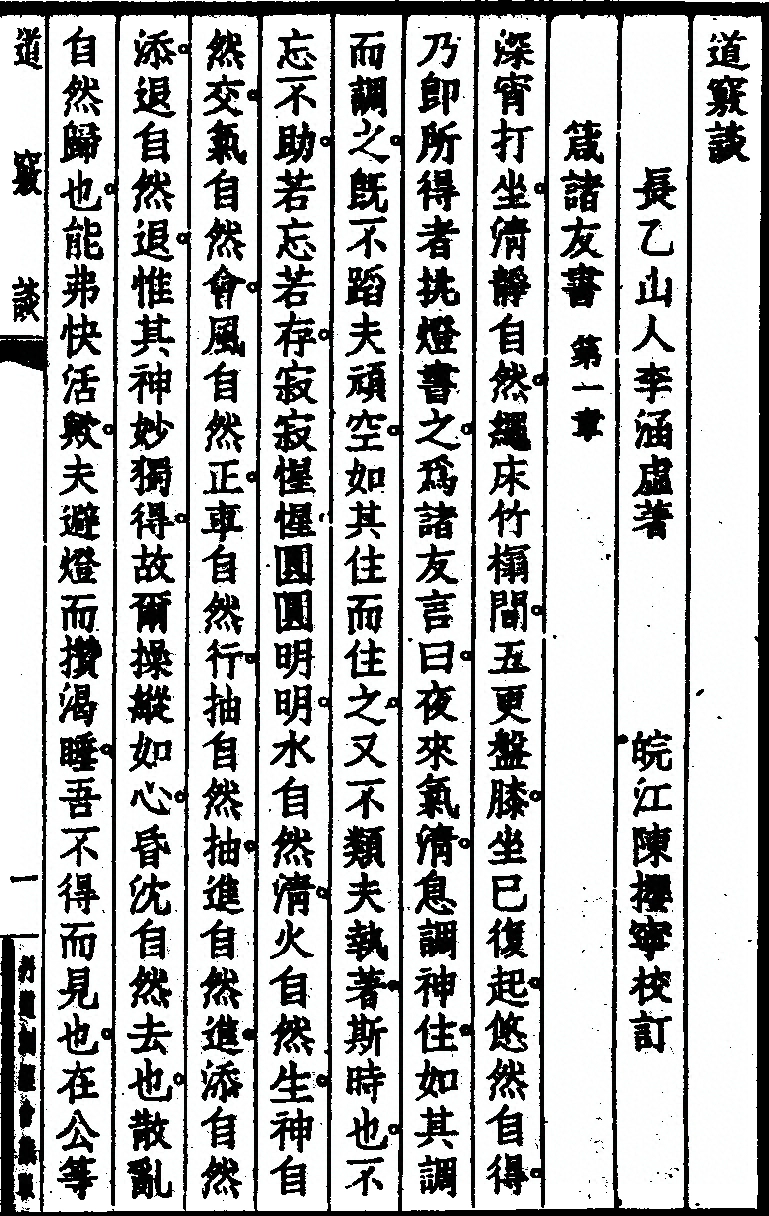 道竅談
長乙山人李涵虛著　皖江陳攖寧校訂
箴諸友書　第一章
深宵打坐。清靜自然。繩床竹榻間。五更盤膝。坐已復起。悠然自得。
乃即所得者挑燈書之。爲諸友言曰。夜來氣清。息調神住。如其調
而調之。旣不蹈夫頑空。如其住而住之。又不類夫執著。斯時也。不
忘不助。若忘若存。寂寂惺惺。圓圓明明。水自然清。火自然生。神自
然交。氣自然會。風自然正。車自然行。抽自然抽。進自然進。添自然
添。退自然退。惟其神妙獨得。故爾操縱如心。昏沈自然去也。散亂
自然歸也。能弗快活歟。夫避燈而攢渴睡。吾不得而見也。在公等
道竅談
一